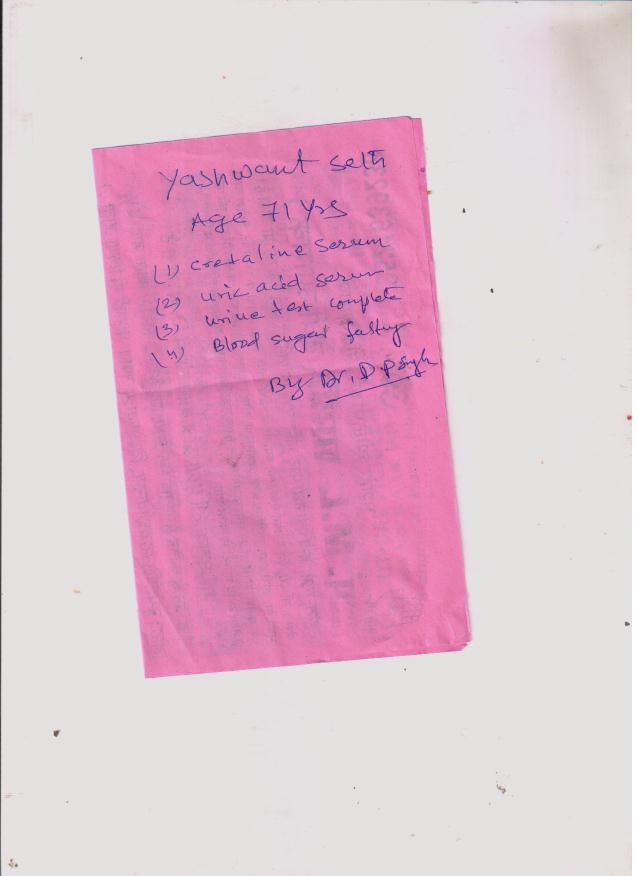 Yashwant Seth
Age 71 Yrs
(1) creataline Serum
(2) uric acid serum
(3) urine test complete
(4) Blood sugar fasting
By Dr. D.P Singh